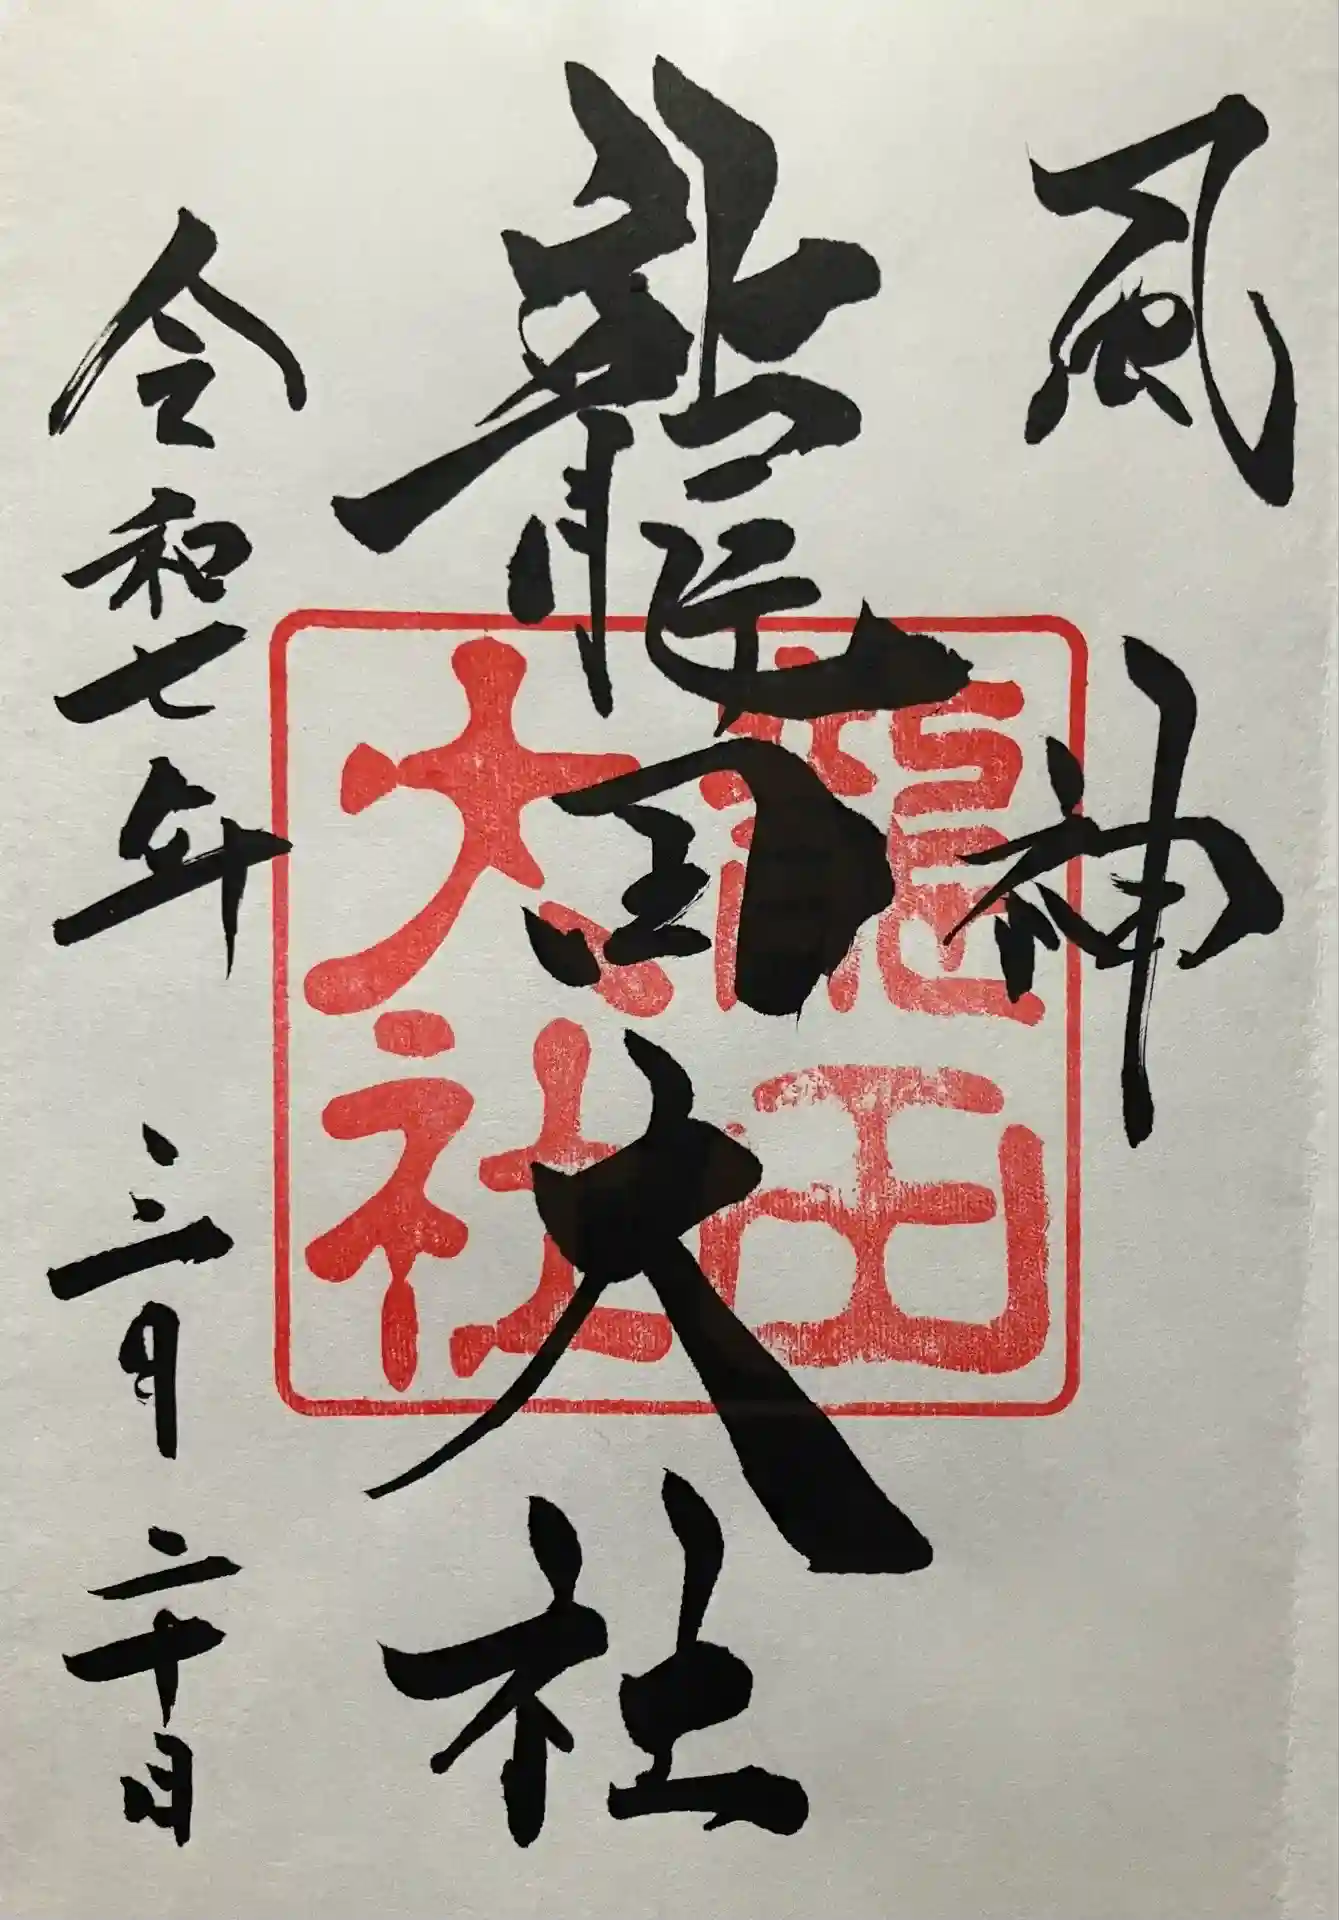 風神
龍田大社
令和七年 三月 二十日
龍田
大社